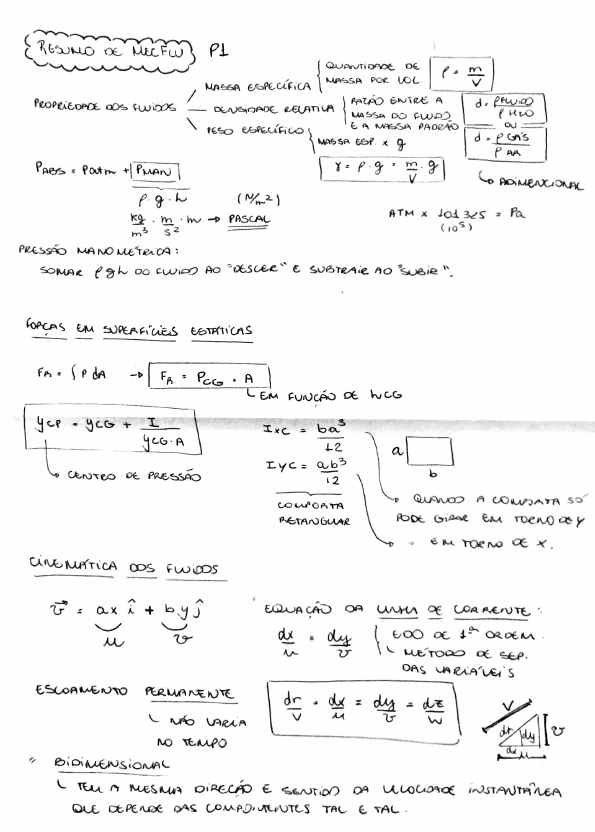 RESUMO DE MECFLU P1
PROPRIEDADE DOS FLUIDOS
MASSA ESPECÍFICA { QUANTIDADE DE MASSA POR VOL ρ = m/V
DENSIDADE RELATIVA { RAZÃO ENTRE A MASSA DO FLUIDO E A MASSA PADRÃO d = ρ FLUIDO / ρ H2O OU d = ρ GÁS / ρ AR
↳ ADIMENCIONAL
PESO ESPECÍFICO { MASSA ESP. x g γ = ρ . g = m/V . g
PABS = Patm + PMAN
ρ . g . h (N/m²)
kg/m³ . m/s² . m → PASCAL
ATM x 101 325 = Pa
(10⁵)
PRESSÃO MANOMÉTRICA:
SOMAR ρgh DO FLUIDO AO "DESCER" E SUBTRAIR AO "SUBIR".
FORÇAS EM SUPERFÍCIES ESTÁTICAS
FR = ∫ P dA → FR = PCG . A
↳ EM FUNÇÃO DE hCG
yCP = yCG + I / yCG . A
↳ CENTRO DE PRESSÃO
IxC = ba³/12
IyC = ab³/12
COMPORTA
RETANGULAR
a
b
QUANDO A COMPORTA SÓ
PODE GIRAR EM TORNO DE Y
" EM TORNO DE X.
CINEMÁTICA DOS FLUIDOS
v⃗ = ax î + by ĵ
u v
EQUAÇÃO DA LINHA DE CORRENTE:
dx/u = dy/v { EDO DE 1ª ORDEM.
↳ MÉTODO DE SEP.
DAS VARIÁVEIS
ESCOAMENTO PERMANENTE
↳ NÃO VARIA
NO TEMPO
dr/V = dx/u = dy/v = dz/w
V
dr dy v
dx
u
" BIDIMENSIONAL
↳ TEM A MESMA DIREÇÃO E SENTIDO DA VELOCIDADE INSTANTÂNEA
QUE DEPENDE DAS COMPONENTES TAL E TAL.